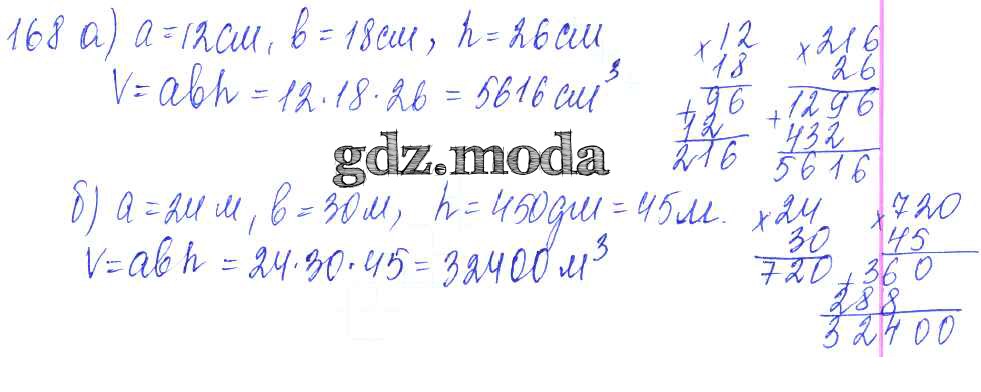 168 а) a=12см, b=18см, h=26см
V=abh=12·18·26=5616см³
×12
18
+96
12
216
×216
26
+1296
432
5616
gdz.moda
б) a=24м, b=30м, h=450дм=45м.
V=abh=24·30·45=32400м³
×24
30
720
×720
45
+360
288
32400